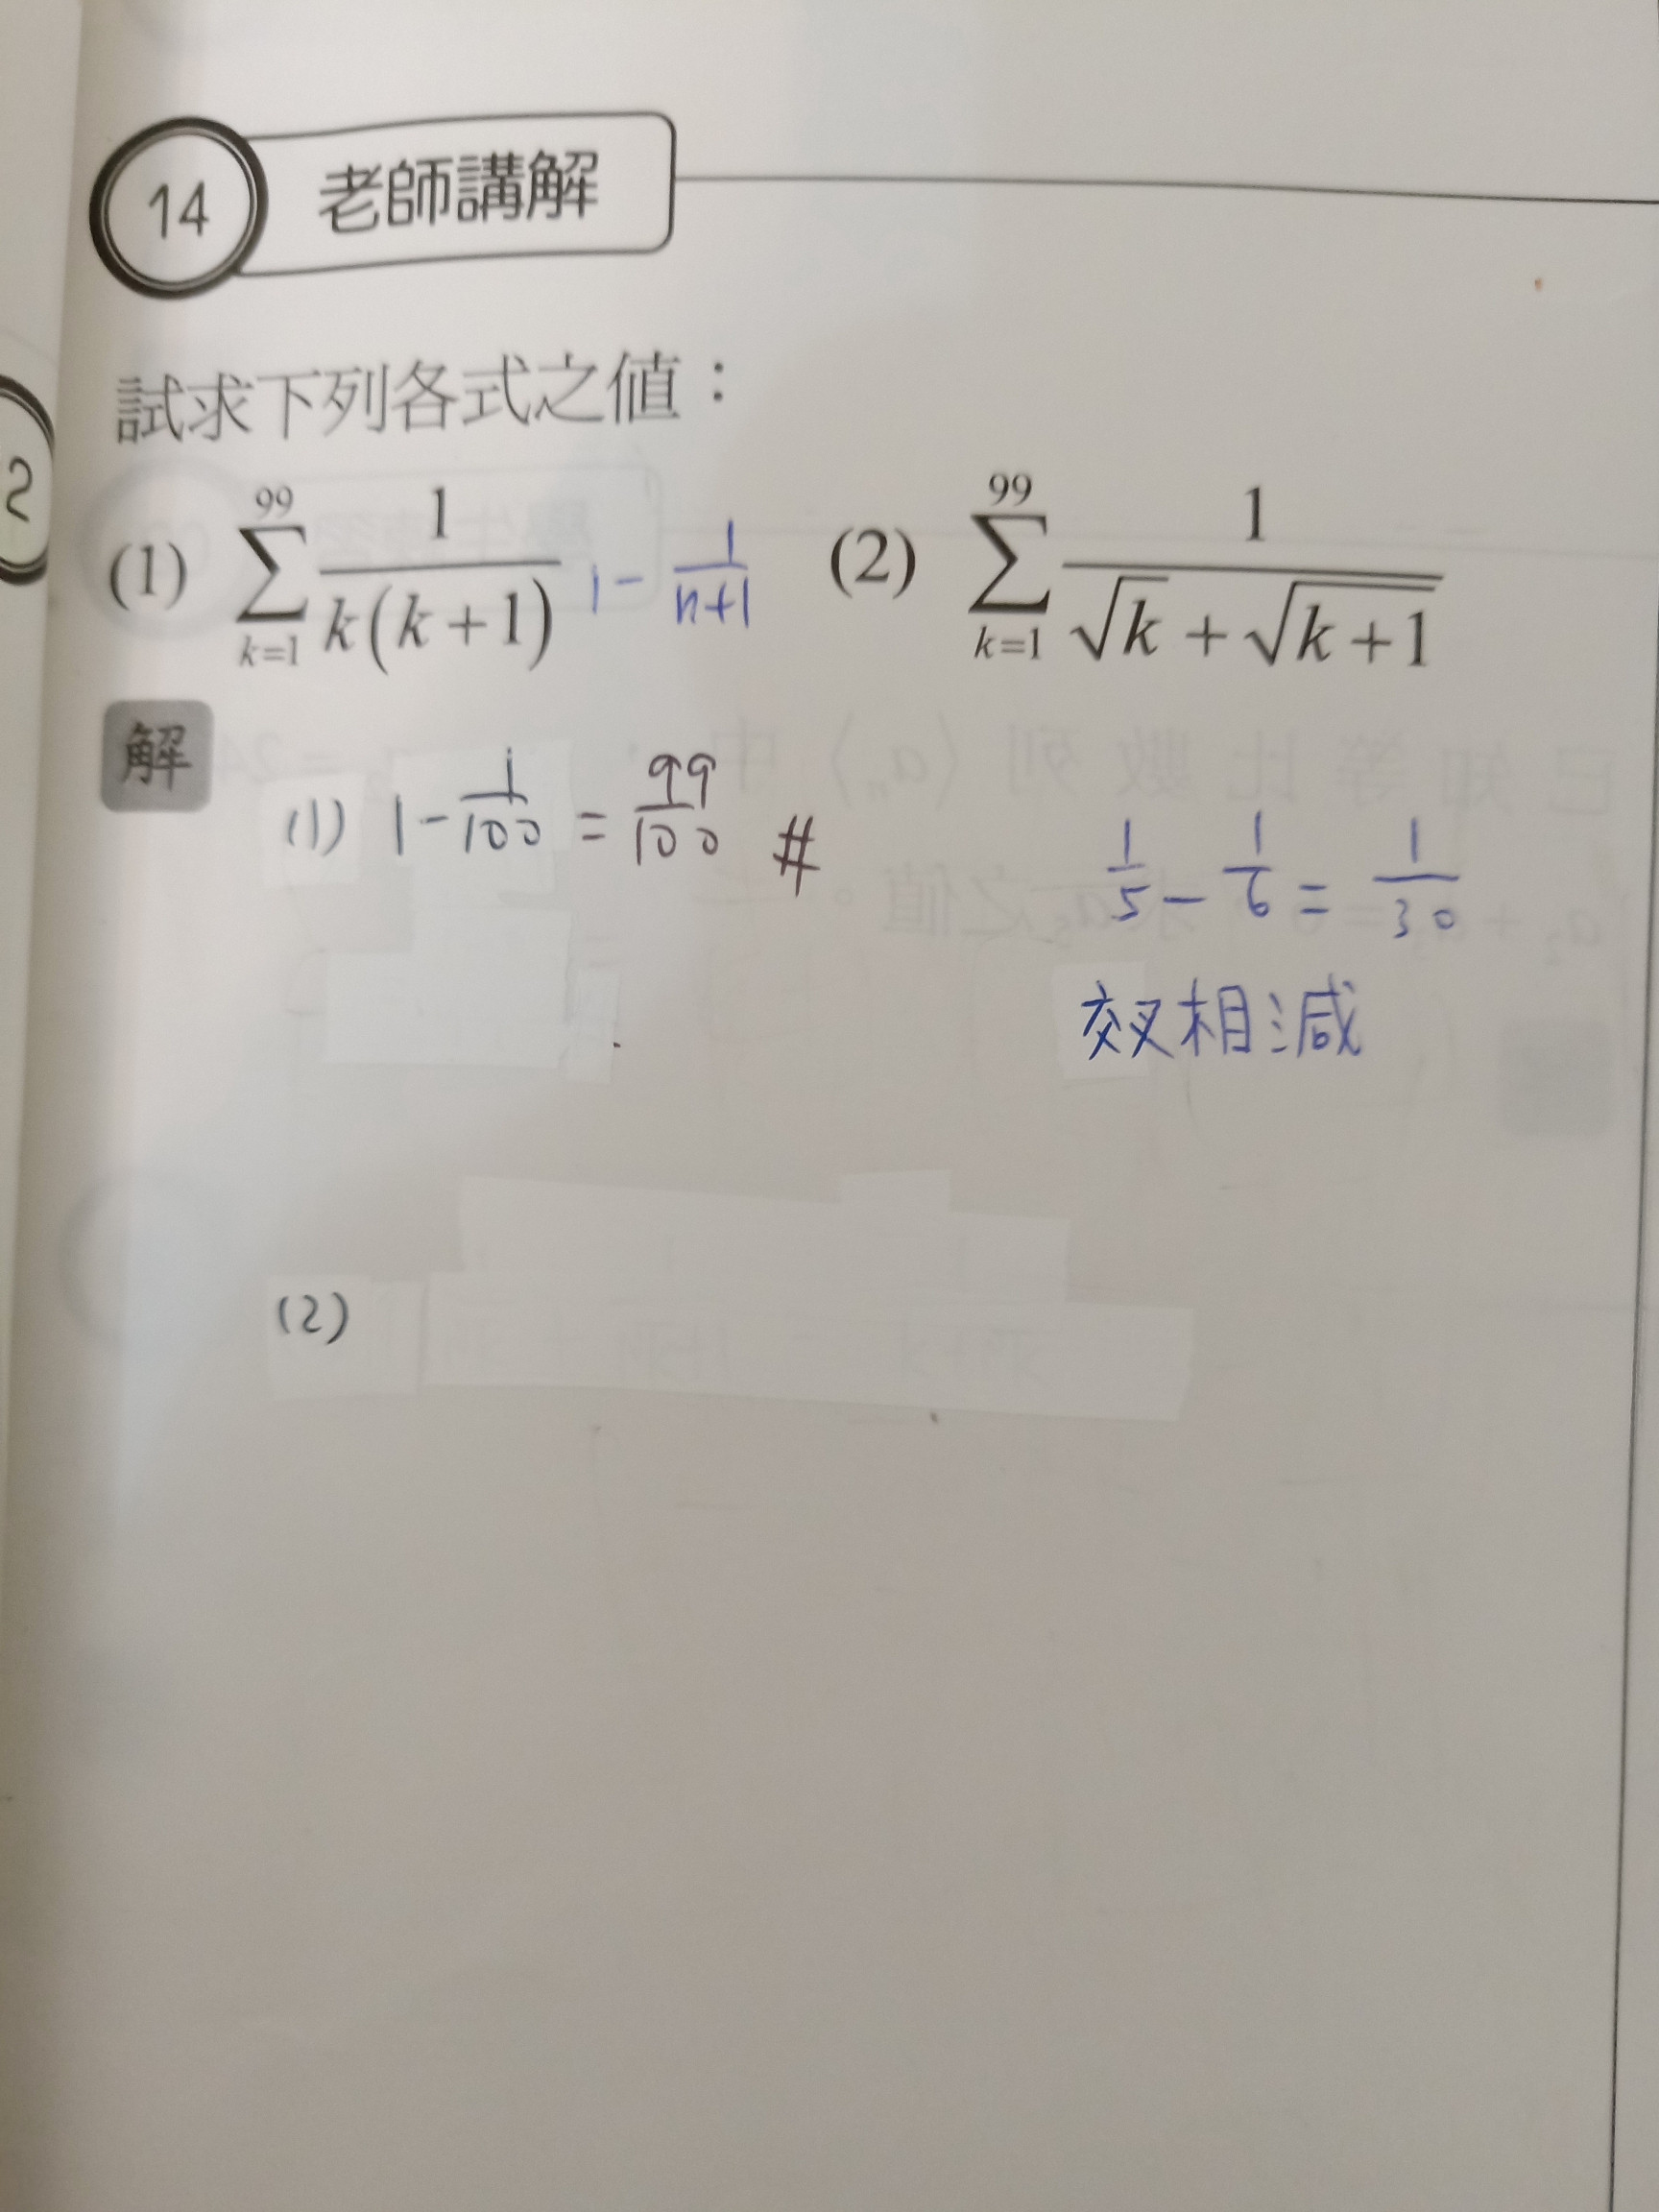 14 老師講解
試求下列各式之值：
(1) \sum_{k=1}^{99} \frac{1}{k(k+1)} 1 - \frac{1}{n+1} (2) \sum_{k=1}^{99} \frac{1}{\sqrt{k}+\sqrt{k+1}}
解
(1) 1 - \frac{1}{100} = \frac{99}{100} #
\frac{1}{5} - \frac{1}{6} = \frac{1}{30}
交叉相減
(2)
2